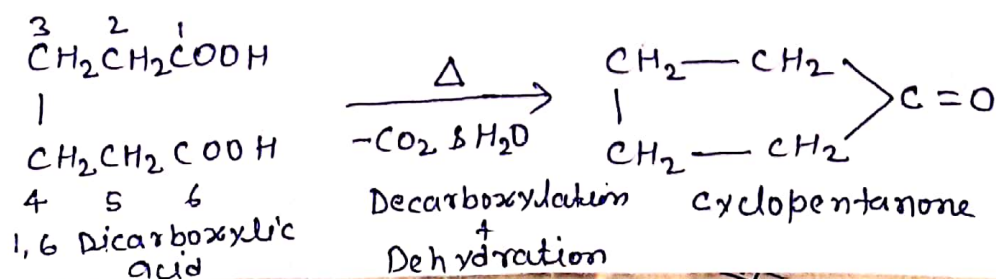 3 2 1
CH2CH2COOH
|
CH2CH2COOH
4 5 6
1,6 Dicarboxylic
acid
Δ
-CO2 & H2O
Decarboxylation
+
Dehydration
CH2—CH2
| C=O
CH2—CH2
Cyclopentanone